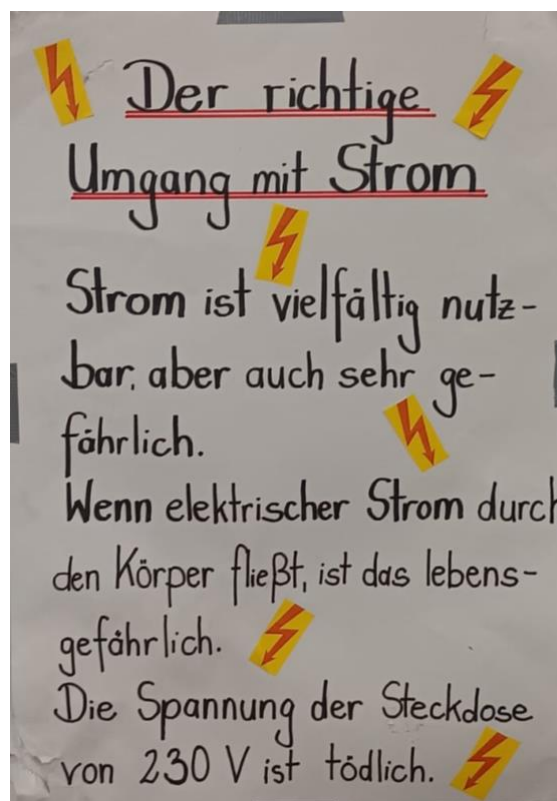 Der richtige
Umgang mit Strom
Strom ist vielfältig nutz-
bar, aber auch sehr ge-
fährlich.
Wenn elektrischer Strom durch
den Körper fließt, ist das lebens-
gefährlich.
Die Spannung der Steckdose
von 230 V ist tödlich.